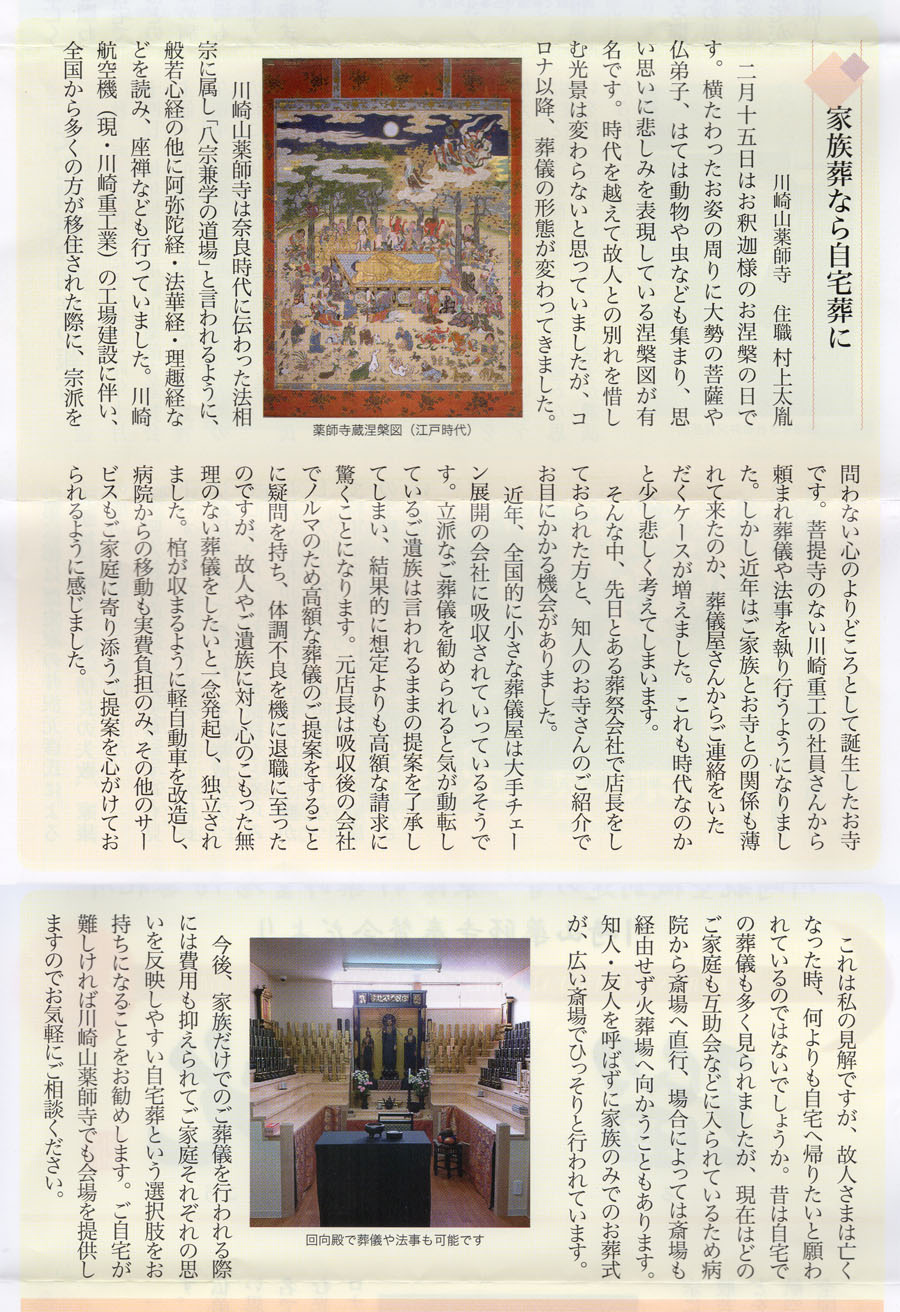 家族葬なら自宅葬に
川崎山薬師寺　住職 村上太胤
　二月十五日はお釈迦様のお涅槃の日で
す。横たわったお姿の周りに大勢の菩薩や
仏弟子、はては動物や虫なども集まり、思
い思いに悲しみを表現している涅槃図が有
名です。時代を越えて故人との別れを惜し
む光景は変わらないと思っていましたが、コ
ロナ以降、葬儀の形態が変わってきました。
薬師寺蔵涅槃図（江戸時代）
　川崎山薬師寺は奈良時代に伝わった法相
宗に属し「八宗兼学の道場」と言われるように、
般若心経の他に阿弥陀経・法華経・理趣経な
どを読み、座禅なども行っていました。川崎
航空機（現・川崎重工業）の工場建設に伴い、
全国から多くの方が移住された際に、宗派を
問わない心のよりどころとして誕生したお寺
です。菩提寺のない川崎重工の社員さんから
頼まれ葬儀や法事を執り行うようになりまし
た。しかし近年はご家族とお寺との関係も薄
れて来たのか、葬儀屋さんからご連絡をいた
だくケースが増えました。これも時代なのか
と少し悲しく考えてしまいます。
　そんな中、先日とある葬祭会社で店長をし
ておられた方と、知人のお寺さんのご紹介で
お目にかかる機会がありました。
　近年、全国的に小さな葬儀屋は大手チェー
ン展開の会社に吸収されていっているそうで
す。立派なご葬儀を勧められると気が動転し
ているご遺族は言われるままの提案を了承し
てしまい、結果的に想定よりも高額な請求に
驚くことになります。元店長は吸収後の会社
でノルマのため高額な葬儀のご提案をすること
に疑問を持ち、体調不良を機に退職に至った
のですが、故人やご遺族に対し心のこもった無
理のない葬儀をしたいと一念発起し、独立され
ました。棺が収まるように軽自動車を改造し、
病院からの移動も実費負担のみ、その他のサー
ビスもご家庭に寄り添うご提案を心がけてお
られるように感じました。
　これは私の見解ですが、故人さまは亡く
なった時、何よりも自宅へ帰りたいと願わ
れているのではないでしょうか。昔は自宅で
の葬儀も多く見られましたが、現在はどの
ご家庭も互助会などに入られているため病
院から斎場へ直行、場合によっては斎場も
経由せず火葬場へ向かうこともあります。
知人・友人を呼ばずに家族のみでのお葬式
が、広い斎場でひっそりと行われています。
回向殿で葬儀や法事も可能です
　今後、家族だけでのご葬儀を行われる際
には費用も抑えられてご家庭それぞれの思
いを反映しやすい自宅葬という選択肢をお
持ちになることをお勧めします。ご自宅が
難しければ川崎山薬師寺でも会場を提供し
ますのでお気軽にご相談ください。